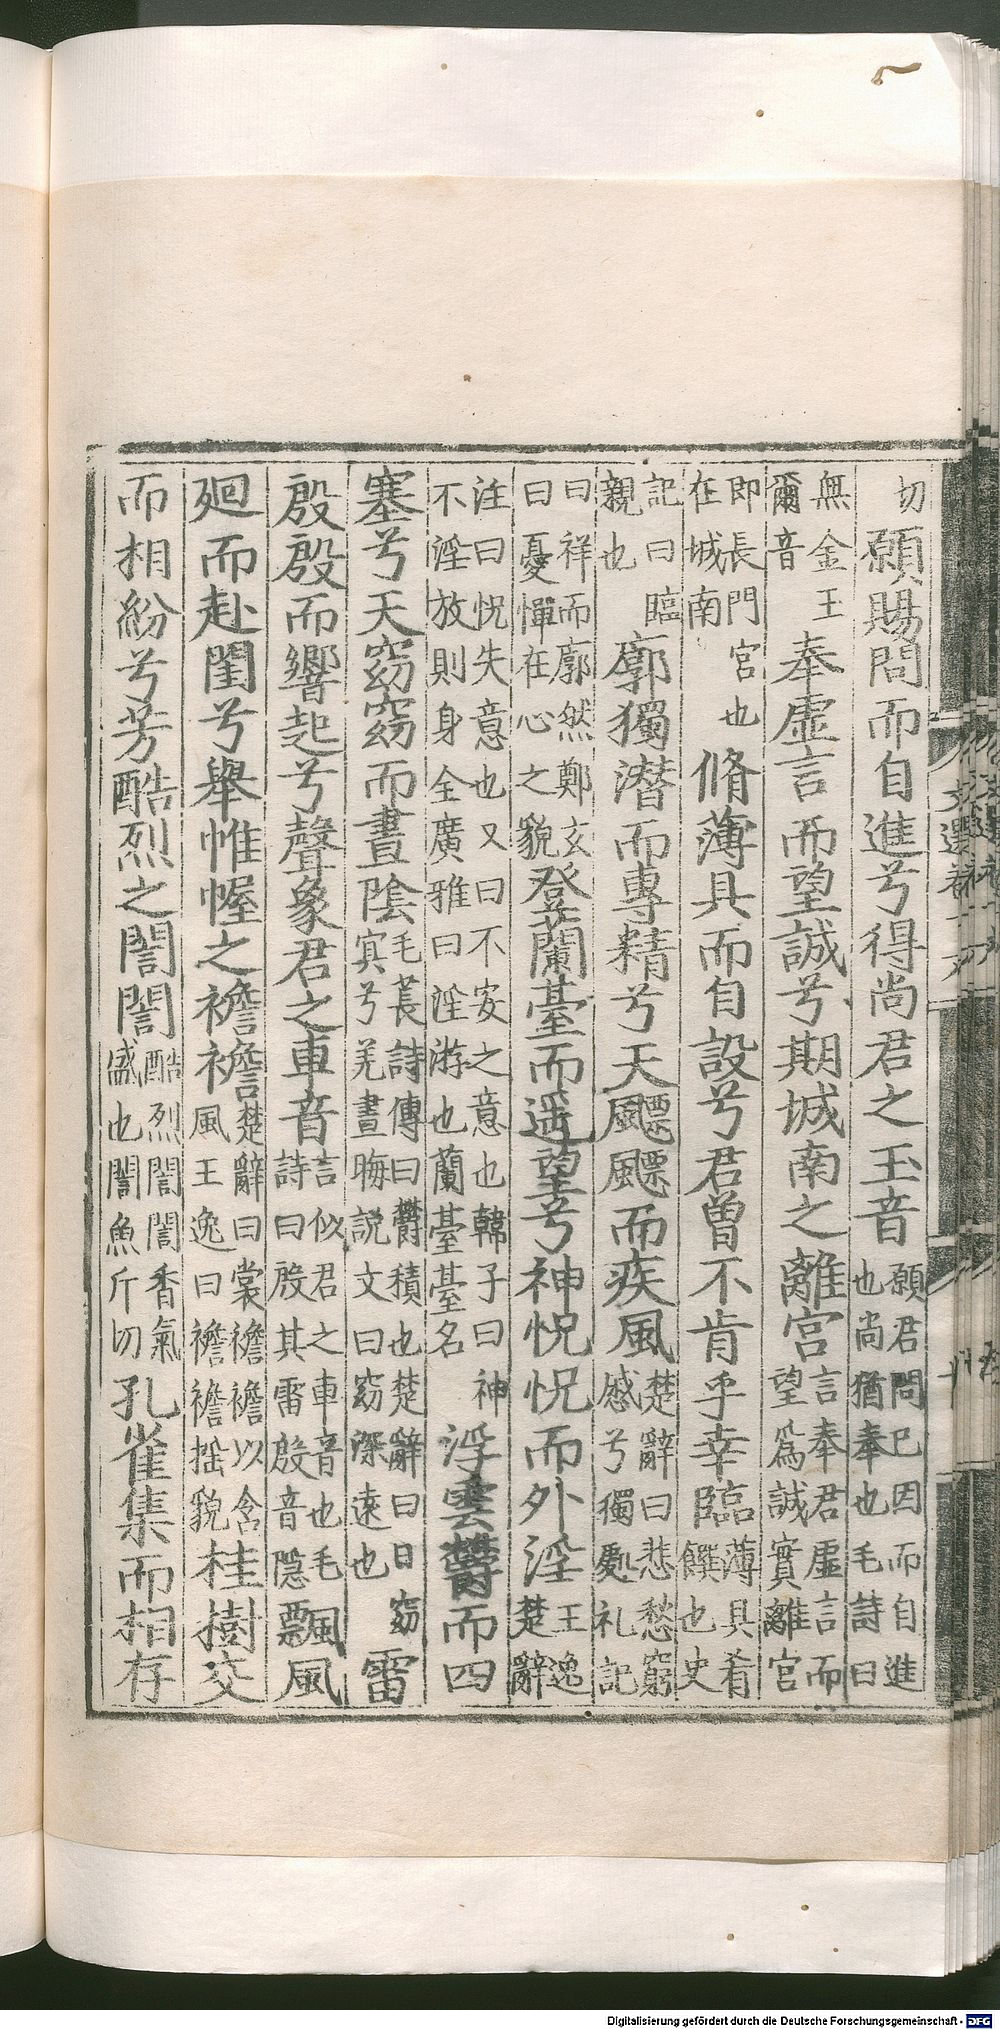 切願賜問而自進兮得尚君之玉音願君問已因而自進也尚猶奉也毛詩曰
無金玉爾音奉虛言而望誠兮期城南之離宮言奉君虛言而望爲誠實離宮
即長門宮也在城南脩薄具而自設兮君曾不肯乎幸臨薄具肴饌也史
記曰臨親也廓獨潜而專精兮天飄飄而疾風楚辭曰悲愁窮慼兮獨處礼記
曰祥而廓然鄭玄曰憂悼在心之貌登蘭臺而遥望兮神怳怳而外淫王逸楚辭
注曰怳失意也又曰不安之意也韓子曰神不淫放則身全廣雅曰淫游也蘭臺臺名浮雲鬱而四
塞兮天窈窈而晝陰毛萇詩傳曰鬱積也楚辭曰日窈冥兮羌晝晦説文曰窈深遠也雷
殷殷而響起兮聲象君之車音言似君之車音也毛詩曰殷其雷殷音隱飄風
廻而赴閨兮舉帷幄之襜襜楚辭曰裳襜襜以含風王逸曰襜襜摇貌桂樹交
而相紛兮芳酷烈之誾誾酷烈誾誾香氣盛也誾魚斤切孔雀集而相存
Digitalisierung gefördert durch die Deutsche Forschungsgemeinschaft - DFG